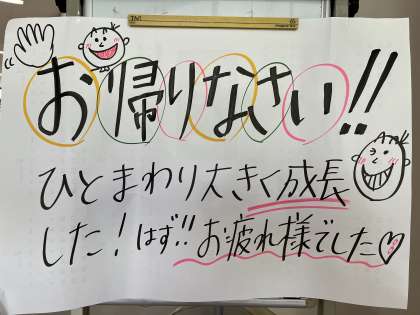 お帰りなさい!!
ひとまわり大きく成長
した！はず!! お疲れ様でした♡